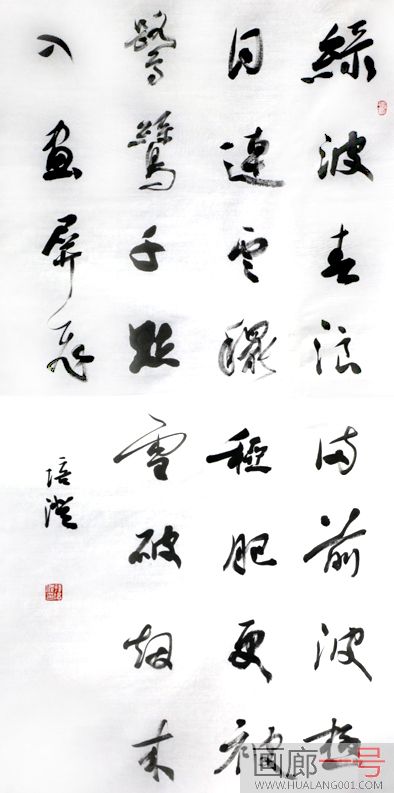 綠波春浪满前波极
目連雲穲稏肥更被
鷺鷥千點雪破烟来
入畫屏飛
培澄
画廊一号
WWW.HUALANG001.COM